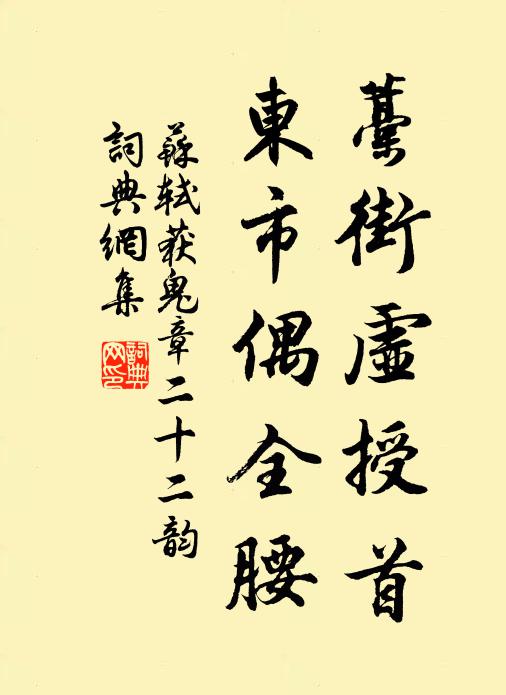 藁街虛授首
東市偶全腰
蘇軾获鬼章二十二韵
詞典網集
詞典網印